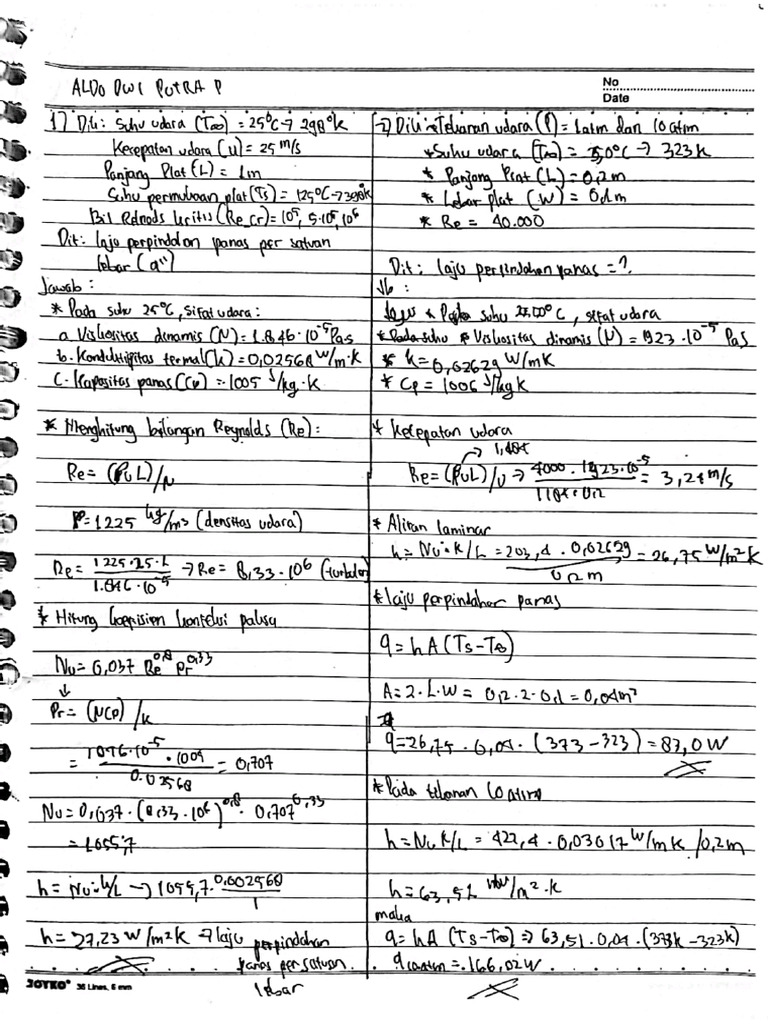 ALDO DWI PUTRA P
No
Date
1) Dik: Suhu udara (T∞) = 25°C → 298°k
Kecepatan udara (U) = 25 m/s
Panjang Plat (L) = 1m
Suhu permukaan plat (Ts) = 125°C → 398°k
Bil Reynolds kritis (Re_cr) = 10⁵, 5·10⁵, 10⁶
Dit: laju perpindahan panas per satuan
lebar (q")
Jawab:
* Pada suhu 25°C, sifat udara:
a. Viskositas dinamis (N) = 1.846·10⁻⁵ Pa.s
b. Konduktivitas termal (k) = 0,02568 W/m·k
C. Kapasitas panas (Cp) = 1005 J/kg·K
* Menghitung bilangan Reynolds (Re):
Re = (ρUL)/N
ρ = 1225 kg/m³ (densitas udara)
Re = 1225·25·1 / 1.846·10⁻⁵ → Re = 8,33·10⁶ (turbulen)
* Hitung koefisien konveksi paksa
Nu = 0,037 Re^0,8 Pr^0,33
↓
Pr = (NCp)/k
= 1846·10⁻⁵·1005 / 0.02568 = 0,707
Nu = 0,037·(8,33·10⁶)^0,8 · 0,707^0,33
= 1055,7
h = Nu·k/L → 1055,7· 0,002568 / 1
h = 27,23 W/m²K → laju perpindahan
panas per satuan
lebar
JOYKO® 36 Lines, 6 mm
2) Dik * Tekanan udara (P) = 1 atm dan 10 atm
* Suhu udara (T∞) = 50°C → 323k
* Panjang Plat (L) = 0,2m
* Lebar plat (W) = 0,1m
* Re = 40.000
Dit: laju perpindahan panas = ?
Jb:
* Pada suhu °C, sifat udara
* Viskositas dinamis (N) = 1923·10⁻⁵ PaS
* k = 0,02629 W/mK
* Cp = 1006 J/kgK
* Kecepatan udara
→ 1,184
Re = (ρUL)/U → 4000·1923·10⁻⁵ / 1184·0,2 = 3,24 m/s
* Aliran laminar
h = Nu·k/L = 203,4·0,02629 / 0,2m = 26,75 W/m²k
* laju perpindahan panas
q = hA(Ts-T∞)
A = 2·L·W = 0,2·2·0,1 = 0,04m²
q = 26,75·0,04·(373-323) = 83,0W
* Pada tekanan 10 atm
h = Nu k/L = 422,4·0,03017 W/mk /0,2m
h = 63,51 W/m²·k
maka
q = hA(Ts-T∞) ⇒ 63,51·0,04·(373k-323k)
q 10 atm = 166,02W